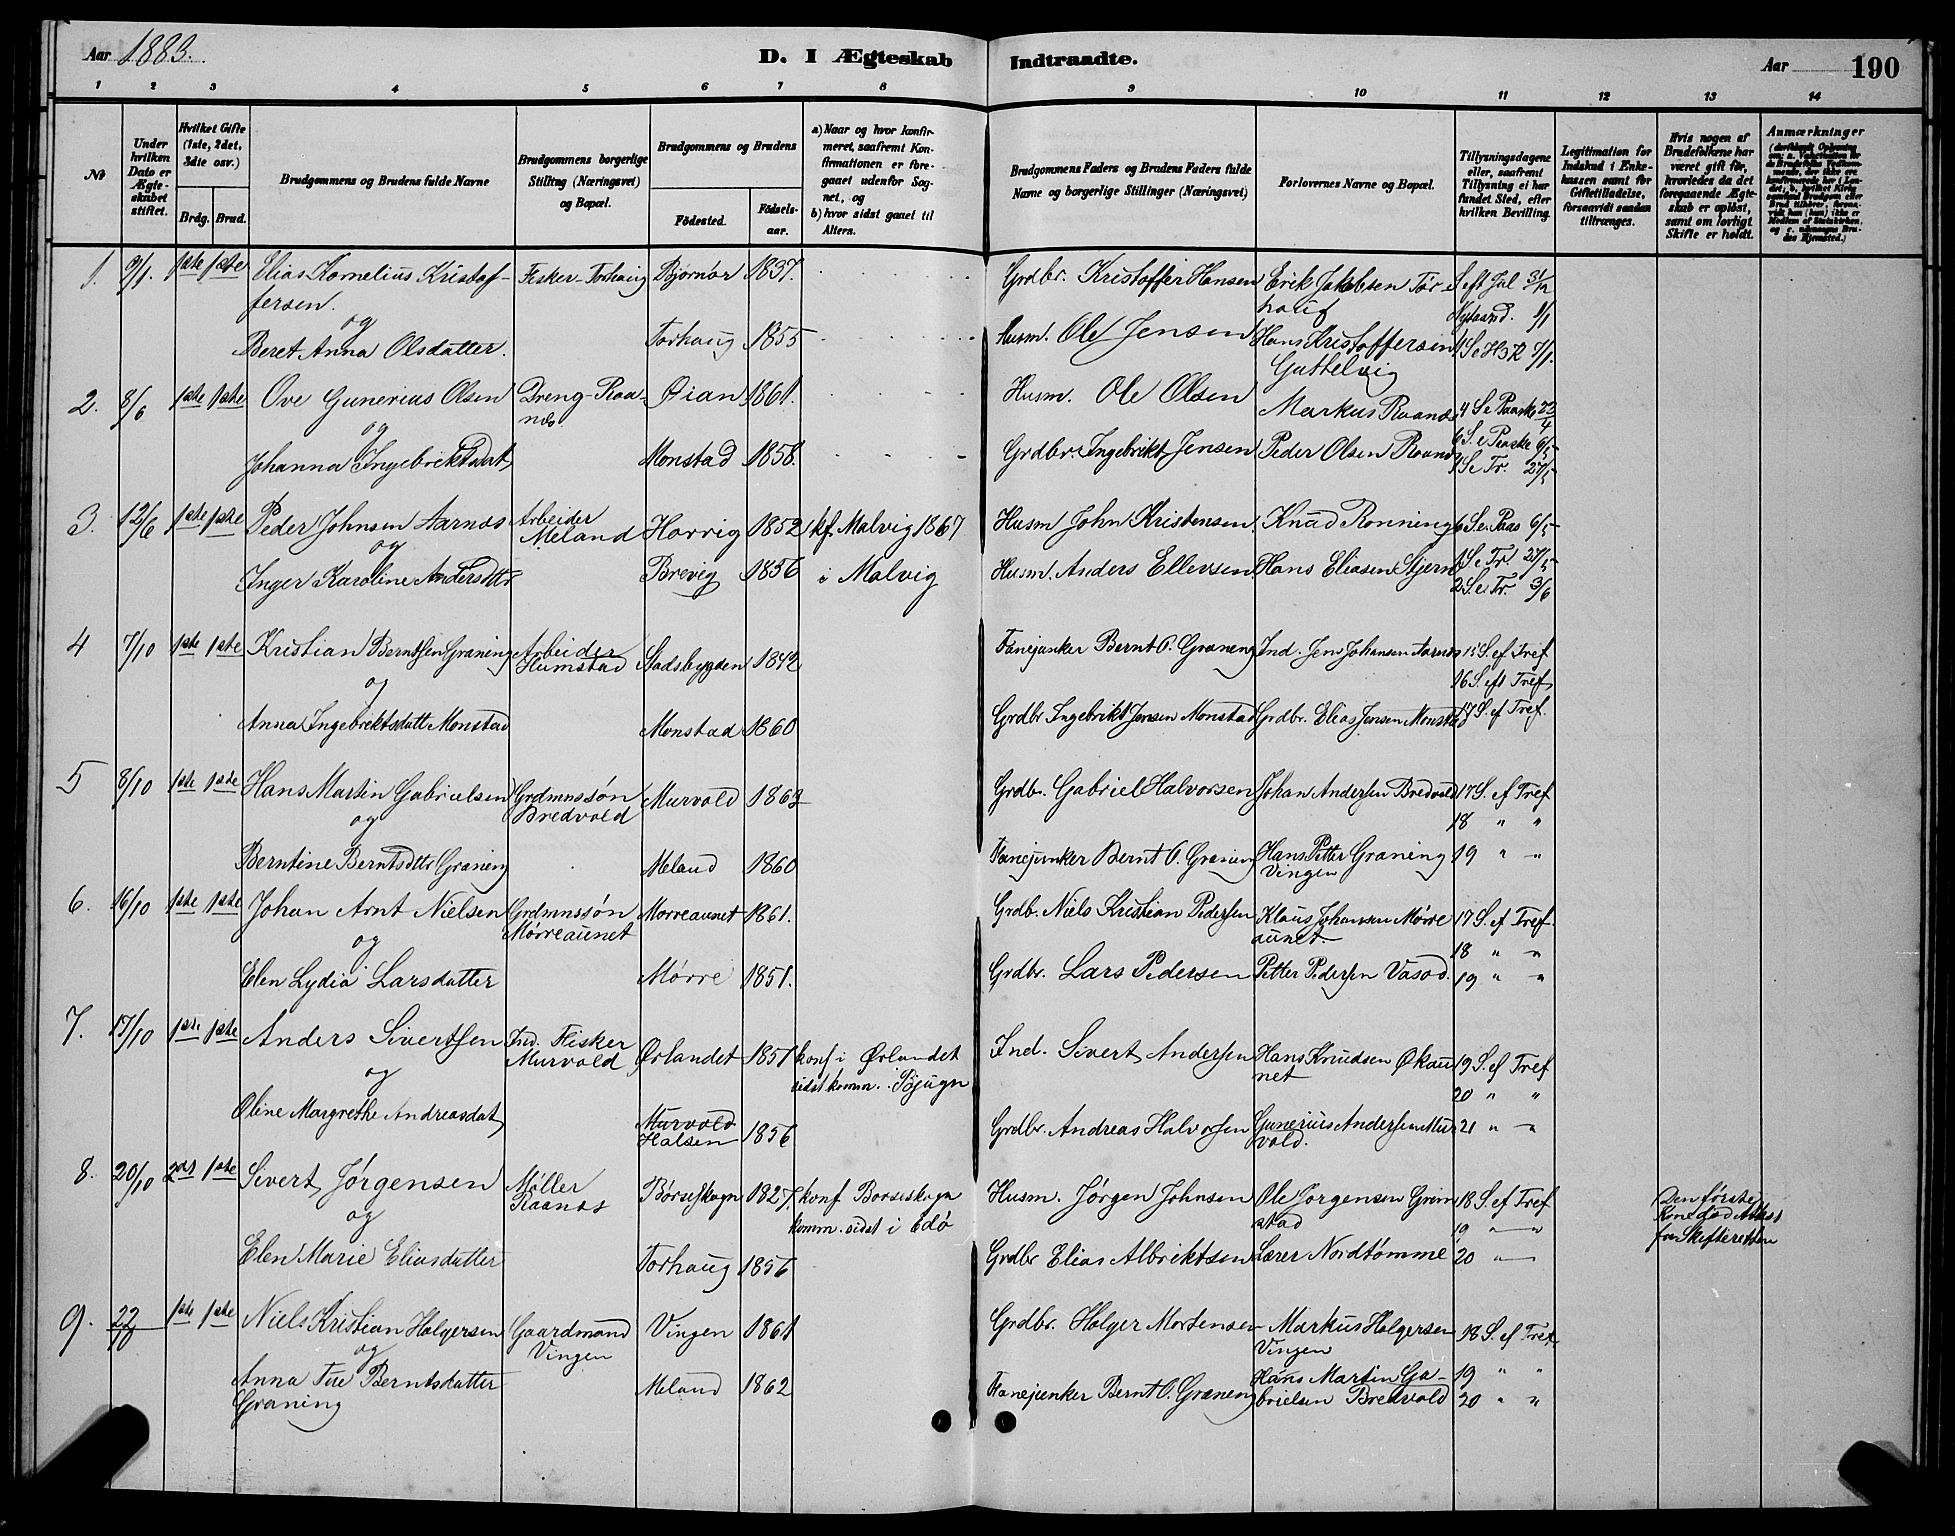 Aar 1883.
D. I Ægteskab Indtraadte.
Aar 190
1 2 3 4 5 6 7 8 9 10 11 12 13 14
No
Under hvilken Dato er Ægteskabet stiftet.
Hvilket Gifte (1ste, 2det, 3die osv.)
Brdg. Brud.
Brudgommens og Brudens fulde Navne
Brudgommens borgerlige Stilling (Næringsvei) og Bopæl.
Brudgommens og Brudens
Födested. Födselsaar.
a) Naar og hvor konfirmeret, saafremt Konfirmationen er foregaaet udenfor Sognet, og
b) hvor sidst gaaet til Alters.
Brudgommens Faders og Brudens Faders fulde Navne og borgerlige Stillinger (Næringsvei)
Forlovernes Navne og Bopæl.
Tillysningsdagene eller, saafremt Tillysning ei har fundet Sted, efter hvilken Bevilling.
Legitimation for Indskud i Enkekassen samt for Giftetilladelse, forsaavidt saadan tiltrænges.
Hvis nogen af Brudefolkene har været gift för, hvorledes da det foregaaende Ægteskab er oplöst, samt om lovligt Skifte er holdt.
Anmærkninger
1. 9/1. 1ste 1ste Elias Kornelius Kristof- Fisker-Torhaug Bjørnør 1837. Grdbr. Kristoffer Hansen Erik Jakobsen Tor- S. eft Jul 31/12
fersen. haug Nytaarsd. 1/1
og
Beret Anna Olsdatter. Torhaug 1855 Husm. Ole Jensen Hans Kristoffersen 1 S. e. H3K 7/1.
Guttelvig
2. 8/6 1ste 1ste Ove Gunerius Olsen Dreng-Raa- Øian 1861. Husm. Ole Olsen Markus Raanæs 4 S. e Paaske 22/4
og næs 6 S. e Paaske 6/5
Johanna Ingebriktsdat Monstad 1858. Grdbr. Ingebrikt Jensen Peder Olsen Raanæs 1 S e Tr. 27/5
3. 12/6 1ste 1ste Peder Johnsen Aarnæs Arbeider Meland Horrig 1852 kf. Malvig 1867 Husm John Kristensen Knud Rønning 6 S. e. Paas 6/5
og
Inger Karoline Andersdtr Brevig 1856 i Malvig Husm. Anders Ellevsen Hans Eliasen Stjern 1 S. e Tr. 27/5
2 S. e. Tr. 3/6
4 7/10 1ste 1ste Kristian Berntsen Graning Arbeider Humstad Stadsbygden 1842 Fanejunker Bernt O. Graneng Ind. Jens Johansen Aarnæs 15 S. ef Tref
og 16 S. eft Tref
Anna Ingebriktsdatt Monstad Monstad 1860 Grdbr Ingebrikt Jensen Monstad Grdbr. Elias Jensen Monstad 17 S. ef Tref.
5 8/10 1ste 1ste Hans Martin Gabrielsen Grdmnssøn Bredvold Murvold 1863 Grdb. Gabriel Halvorsen Johan Andersen Bredvold 17 S. ef Tref
og 18 " "
Berntine Berntsdtr Graning Meland 1860 Fanejunker Bernt O. Graning Hans Petter Graning 19 " "
Vingen
6. 16/10 1ste 1ste Johan Arnt Nielsen Grdmnssøn Mørreaunet Morreaunet 1861. Grdb. Niels Kristian Pedersen Klaus Johansen Mørre 17 S. ef Tref.
og aunet. 18 " "
Elen Lydia Larsdatter Mørre 1851. Grdbr. Lars Pedersen Petter Pedersen Vasød. 19 " "
7. 17/10 1ste 1ste Anders Sivertsen Ind. Fisker Murvold Ørlandet 1851 konf i Ørlandet Ind. Sivert Andersen Hans Knudsen Økau- 19 S. ef Tref
og sidst komm. i Bjugn net 20 " "
Oline Margrethe Andreasdat Murvold Halsen 1856 Grdbr. Andreas Halvorsen Gunerius Andersen Mur- 21 " "
vold.
8. 20/10 2det 1ste Sivert Jørgensen Møller Raanæs Børseskogn 1827. konf Borseskogn Husm. Jørgen Johnsen Ole Jørgensen Grøn- 18 S. ef Tref Den første
og komm. sidst i Edø stad 19 " " Kone død Attest
Elen Marie Eliasdatter Torhaug 1856 Grdbr Elias Albriktsen Lærer Nordtømme 20 " fra Skifteretten
9. 22/10 1ste 1ste Niels Kristian Holgersen Gaardmand Vingen Vingen 1861 Grdbr. Holger Mortensen Markus Holgersen 18 S. ef Tref
og Vingen
Anna Berntsdatter Meland 1862 Fanejunker Bernt O. Graneng Hans Martin Ga- 19 " "
Graning brielsen Bredvold 20 " "